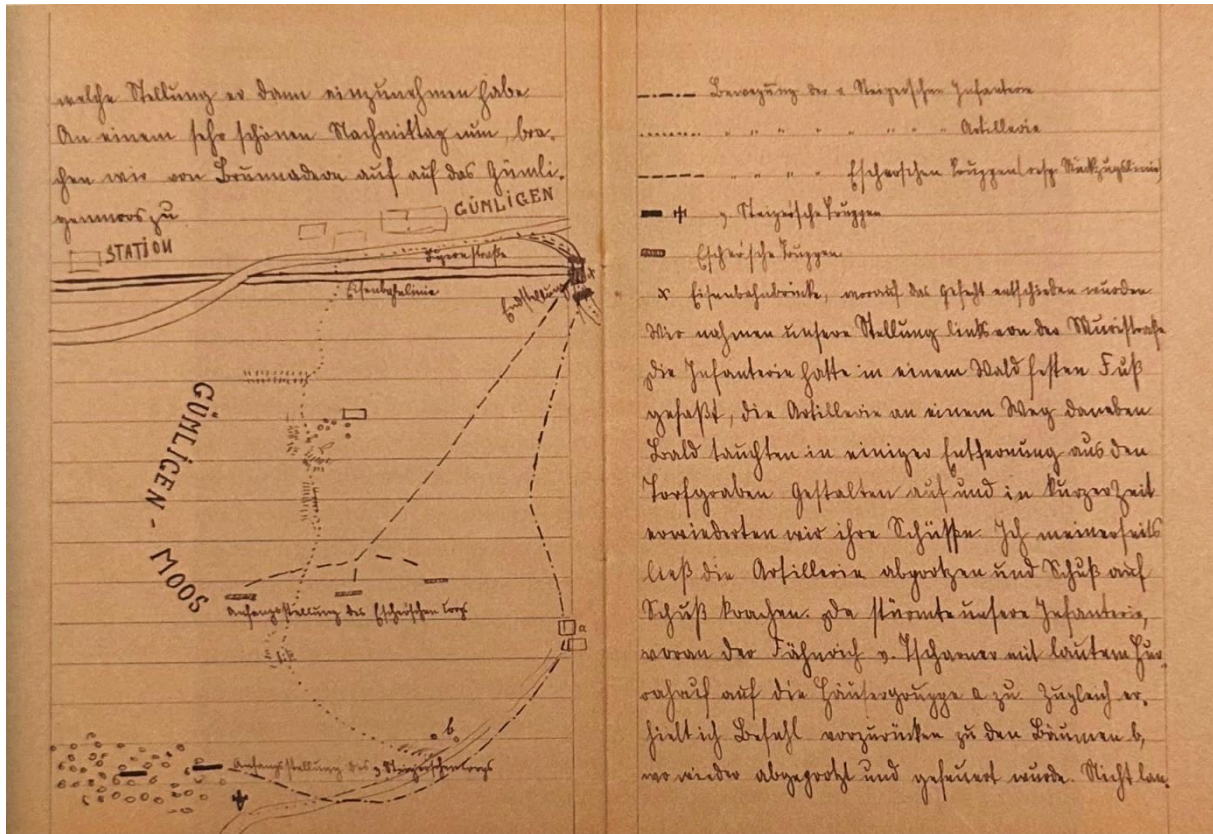 welche Stellung er dann einzunehmen habe
An einem sehr schönen Nachmittag nun, bra-
chen wir von Brunnadern auf auf das Gümli-
genmoos zu
GÜMLIGEN
STATION
Thunstraße
Eisenbahnlinie
Endstellung
x
GÜMLIGEN - MOOS
Anfangsstellung des Escherschen Corps
a
b
Anfangsstellung des v Steigerschen Corps
Bewegung der v Steigerschen Infanterie
" " " " " " " Artillerie
" " " " Escherschen Truppen (resp. Rückzugslinie)
v. Steigersche Truppen
Eschersche Truppen
x Eisenbahnbrücke, worauf das Gefecht entschieden wurden
Wir nahmen unsere Stellung links von der Muristraße
Die Infanterie hatte in einem Wald festen Fuß
gefaßt, die Artillerie an einem Weg daneben
Bald tauchten in einiger Entfernung aus den
Torfgraben Gestalten auf und in kurzer Zeit
erwiederten wir ihre Schüsse. Ich meinerseits
ließ die Artillerie abprotzen und Schuß auf
Schuß krachen. Da stürmte unsere Infanterie,
voran der Fähnrich v. Tscharner mit lautem Hur-
rahruf auf die Häusergruppe a zu Zugleich er-
hielt ich Befehl vorzurücken zu den Bäumen b,
wo wieder abgeprotzt und gefeuert wurde. Nicht lan-